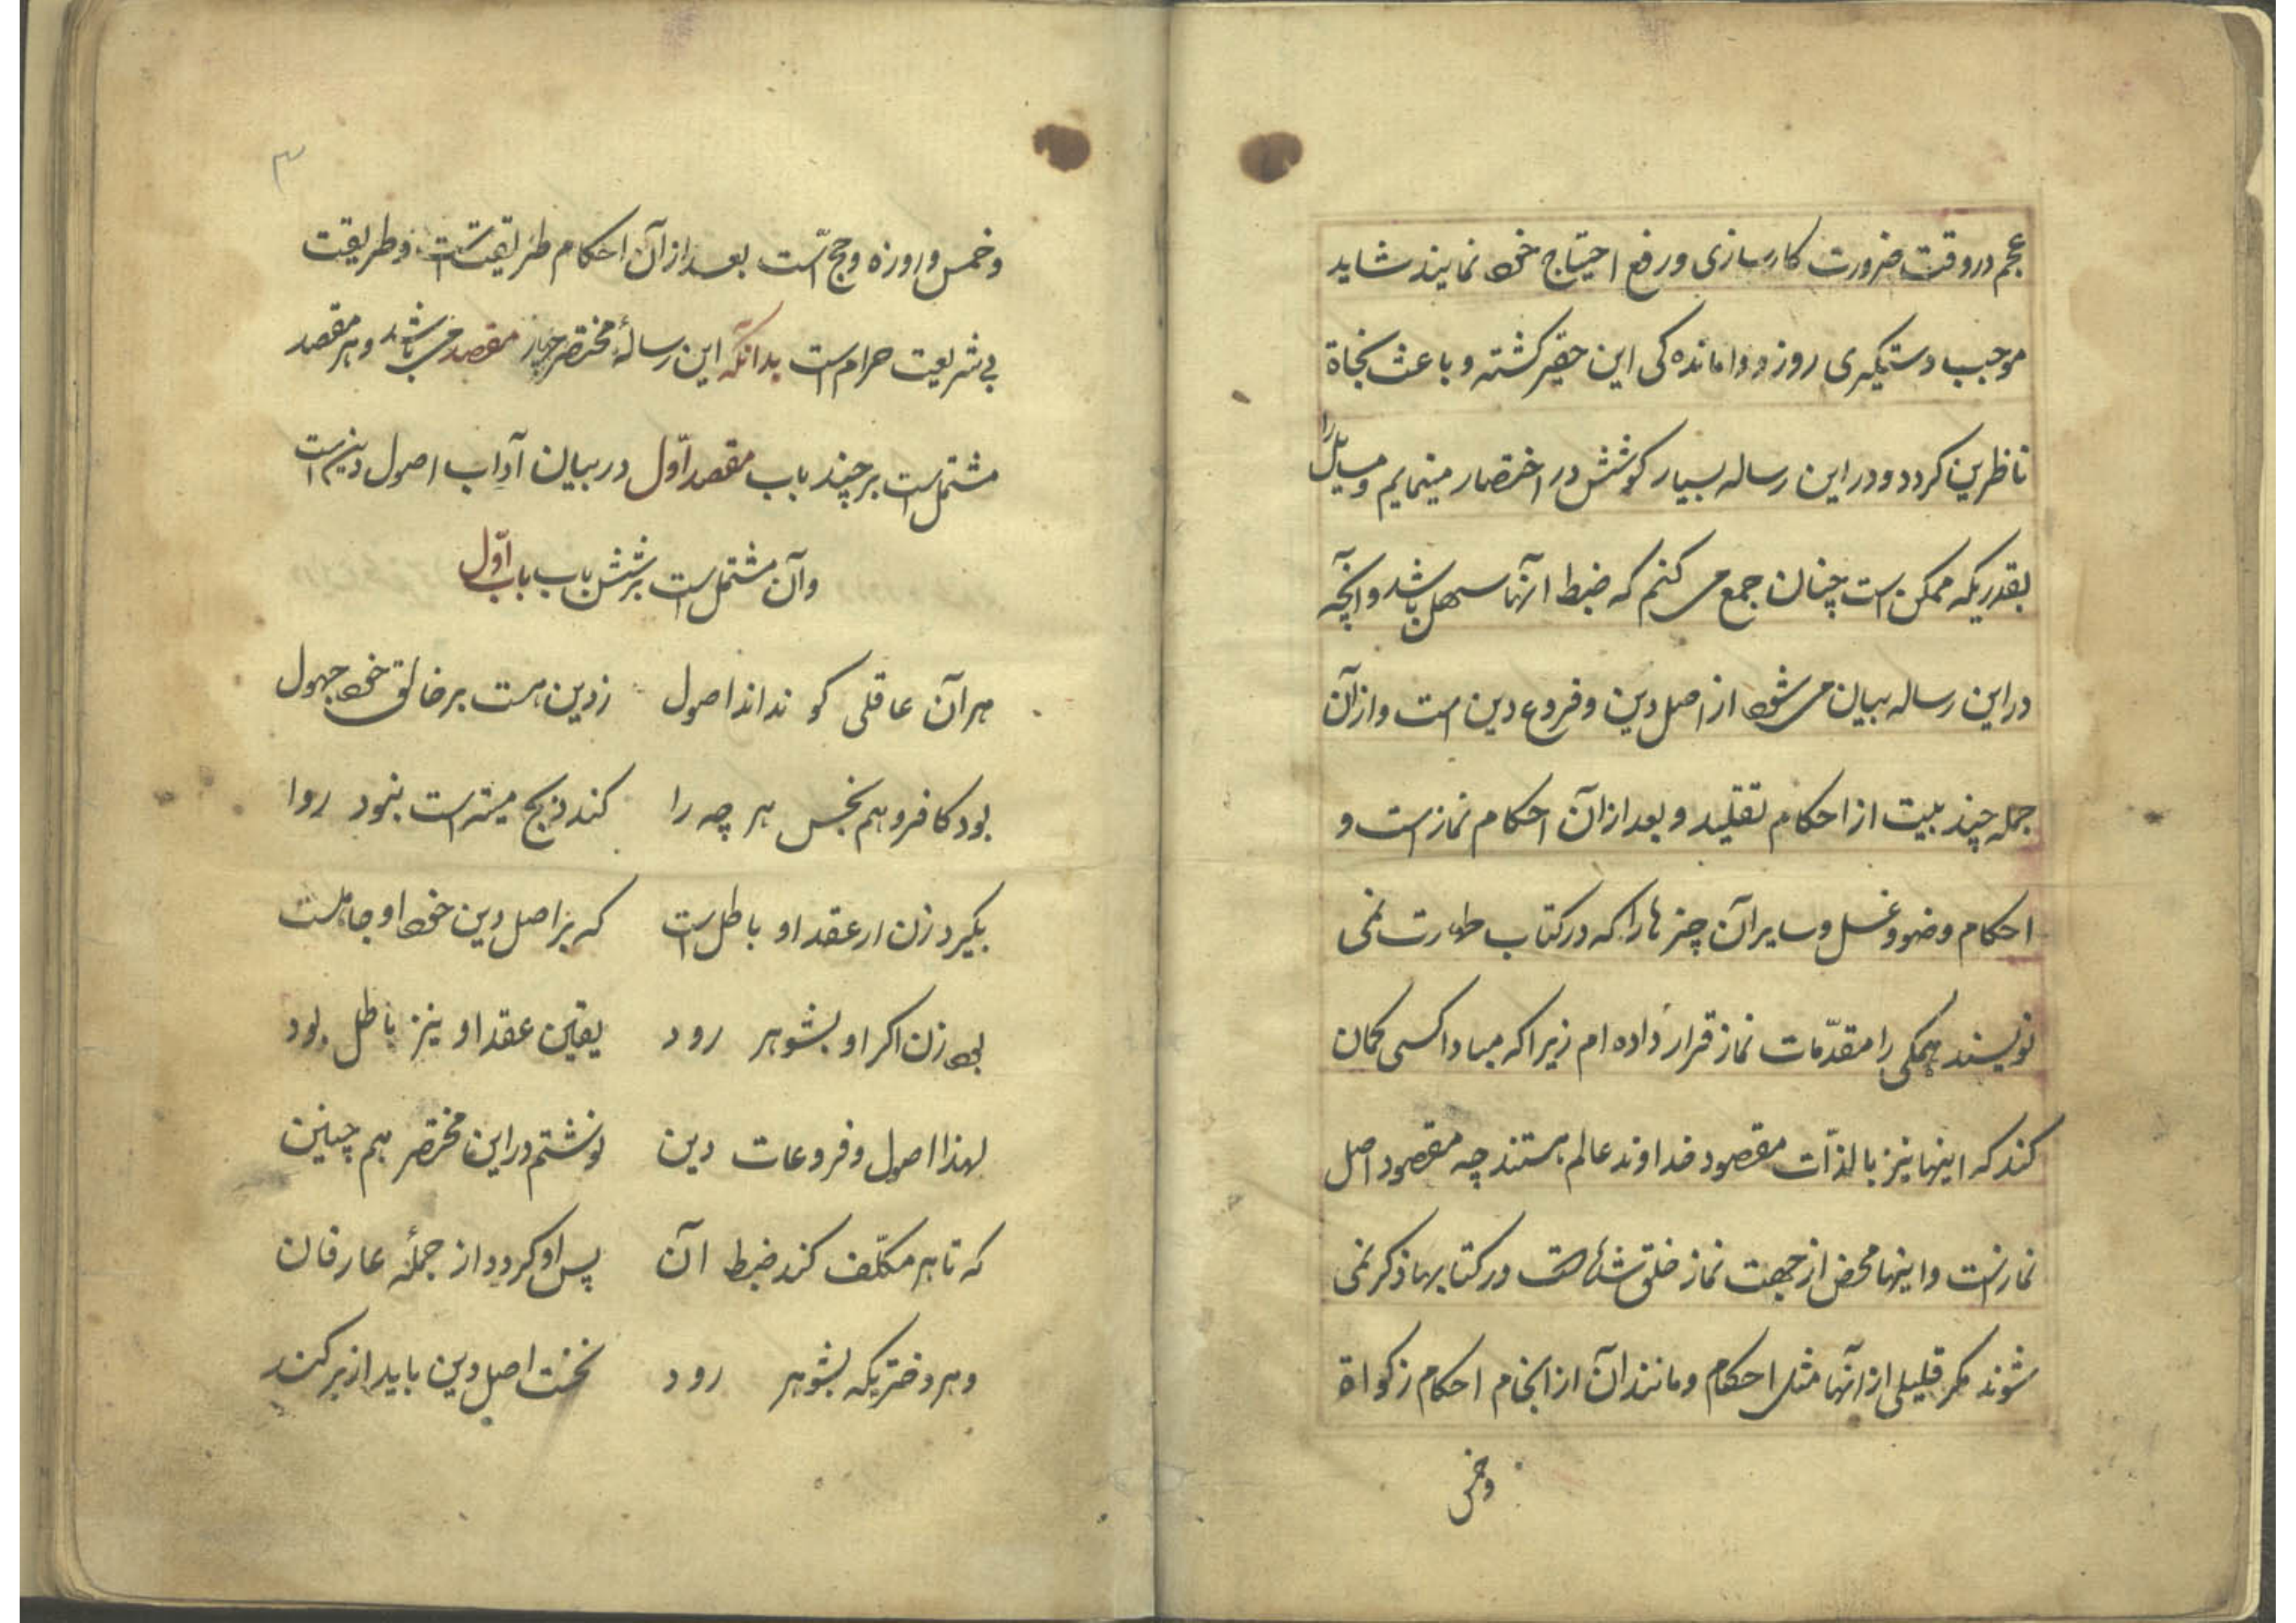 عجم در وقت ضرورت کارسازی و رفع احتیاج خود نمایند شاید
موجب دستگیری روز و واماندەکی این حقیر کشته و باعث نجاة
ناظرین کردد و در این رساله بسیار کوشش در اختصار مینمایم و مسائل را
بقدریکه ممکن است چنان جمع می کنم که ضبط آنها سهل باشد و آنچه
در این رساله بیان می شود از اصل دین و فروع دین است و از آن
جمله چند بیت از احکام تقلید و بعد از آن احکام نماز است و
احکام وضو و غسل و سایر آن چیزها را که در کتاب طهارت نمی
نویسند همکی را مقدّمات نماز قرار داده ام زیرا که مبادا کسی کمان
کند که اینها نیز بالذّات مقصود خداوند عالم هستند چه مقصود اصل
نماز است و اینها محض از جهت نماز خلق شده است و در کتابها ذکر نمی
شوند مکر قلیلی از آنها مثل احکام و مانند آن از انجام احکام زکواة
وخمس
۳
و خمس و روزه و حج است بعد از آن احکام طریقت است و طریقت
بی شریعت حرام است بدانکه این رسالهٔ مختصر چهار مقصد می باشد و هر مقصد
مشتمل است بر چند باب مقصد اوّل در بیان آداب اصول دین است
و آن مشتمل است بر شش باب باب اوّل
هر آن عاقلی کو نداند اصول زدین هست بر خالق خود جهول
بود کافر و هم نجس هر چه را کند ذبح میته است نبود روا
بگیرد زن ار عقد او باطل است که بر اصل دین خود او جاهلست
بود زن اکر او بشوهر رود یقین عقد او نیز باطل بود
لهذا اصول و فروعات دین نوشتم در این مختصر هم چنین
که تا هر مکلّف کند ضبط آن پس او کردد از جملهٔ عارفان
و هر دختریکه بشوهر رود نخست اصل دین باید از بر کند